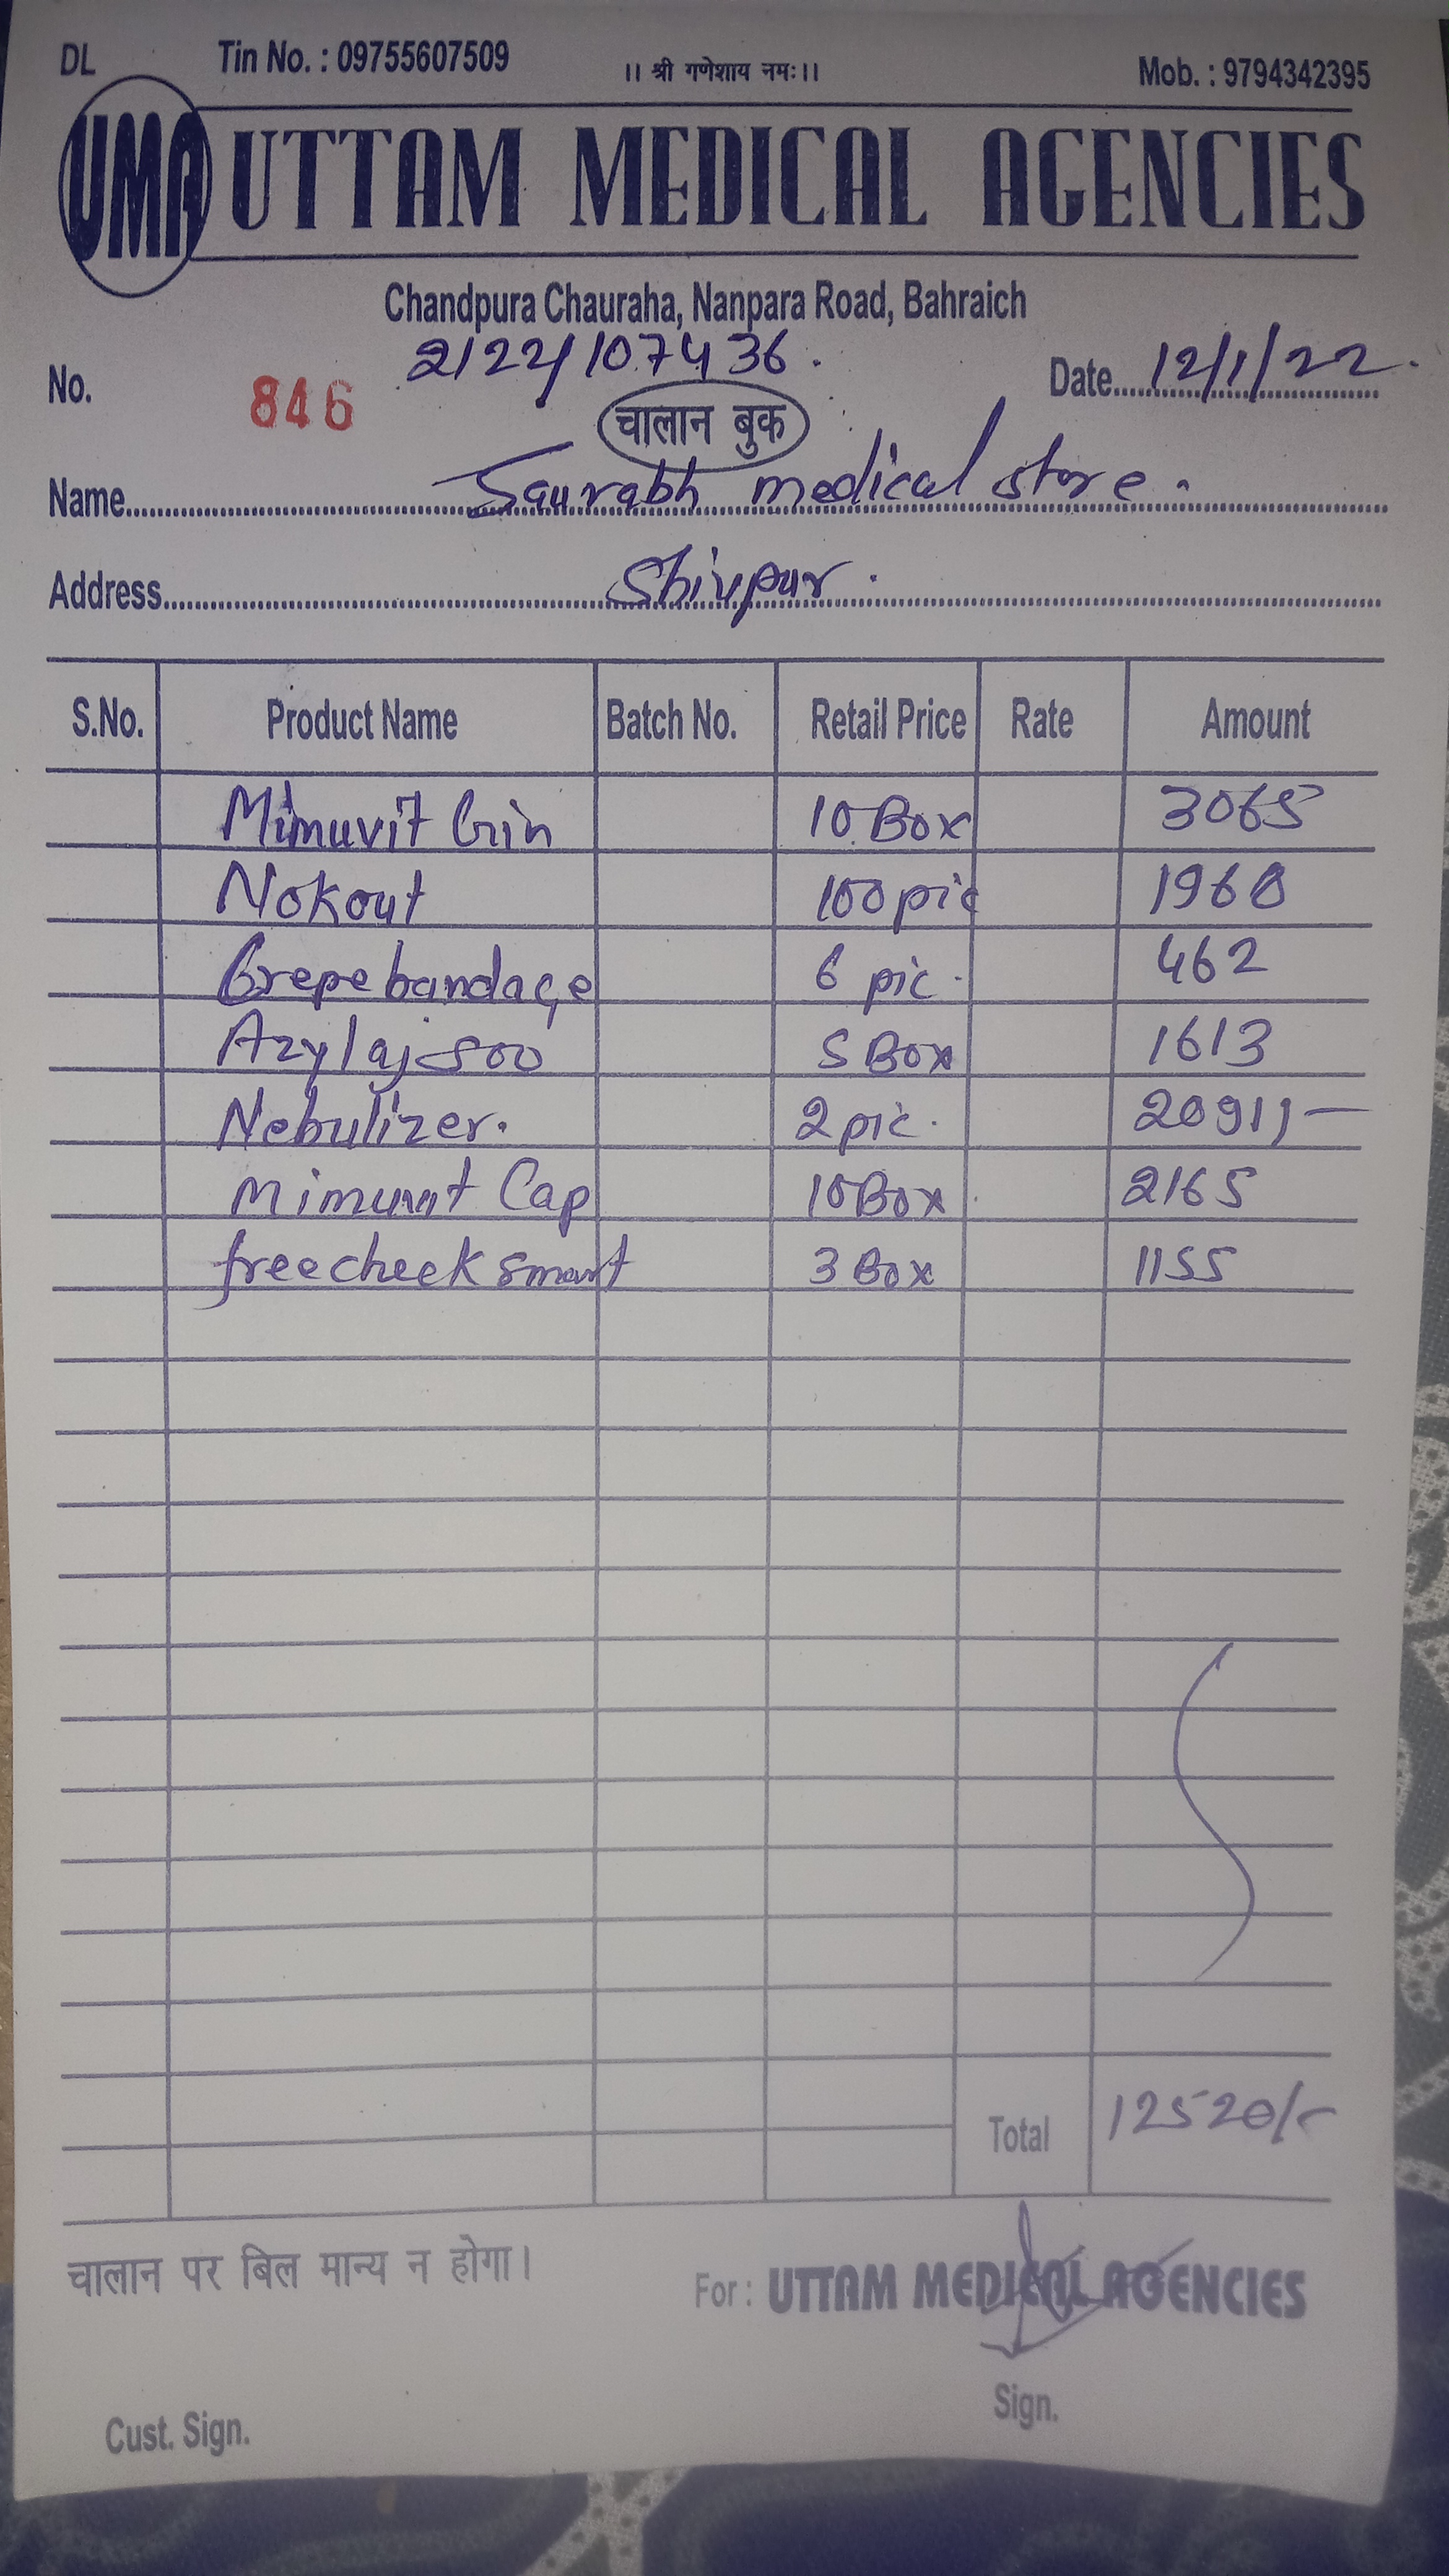 DL Tin No. : 09755607509 ।। श्री गणेशाय नमः।। Mob. : 9794342395
UMA UTTAM MEDICAL AGENCIES
Chandpura Chauraha, Nanpara Road, Bahraich
2122/107436.
No. 846 Date 12/1/22.
चालान बुक
Name Saurabh medical store.
Address Shivpur.
S.No. Product Name Batch No. Retail Price Rate Amount
Mimuvit Grin 10 Box 3065
Nokout 100 pic 1960
Crepe bandage 6 pic. 462
Azylaj 500 5 Box 1613
Nebulizer. 2 pic. 2091/-
Mimuvit Cap 10 Box 2165
freecheek smart 3 Box 1155
Total 12520/-
चालान पर बिल मान्य न होगा।
For : UTTAM MEDICAL AGENCIES
Sign.
Cust. Sign.